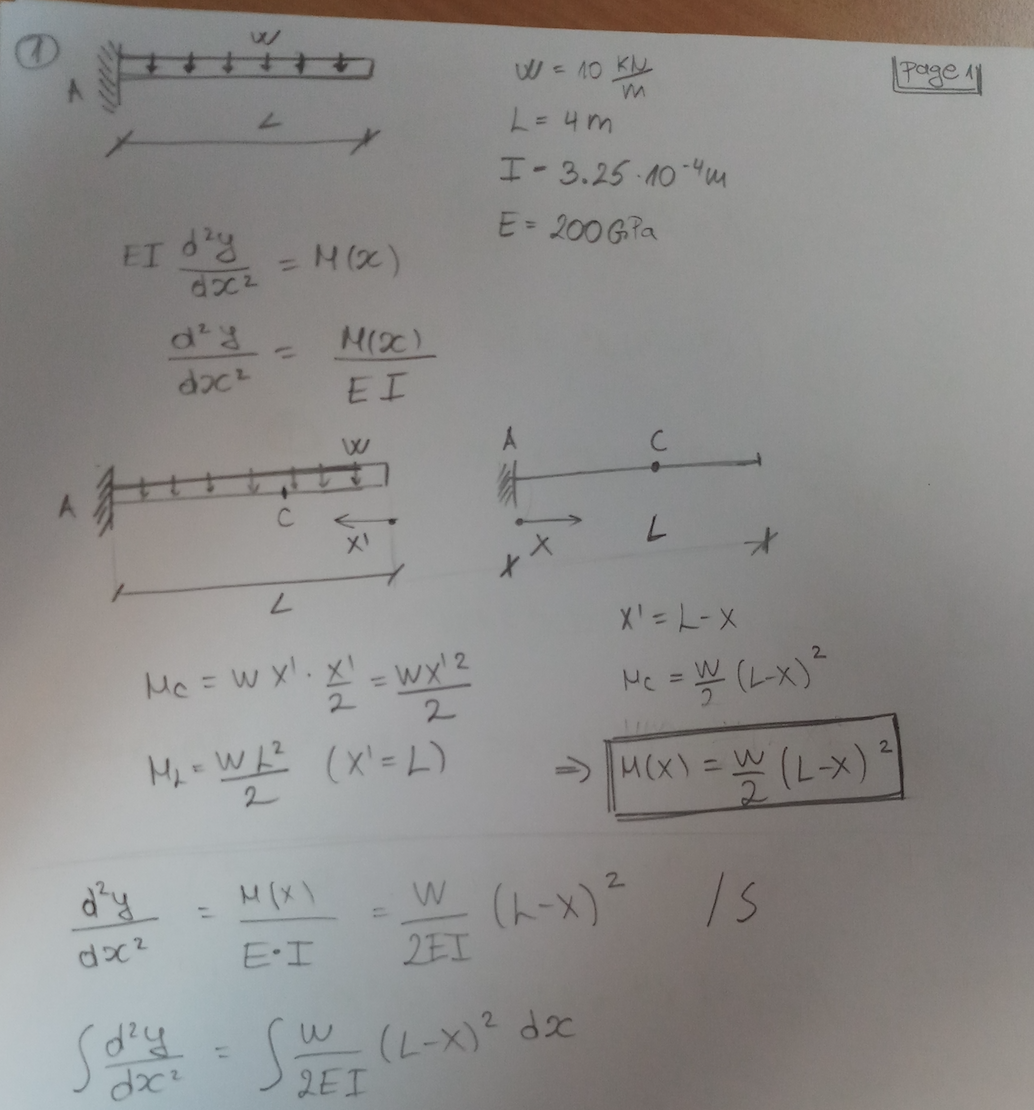 1
W
A
L
W = 10 KN/m
L = 4m
I - 3.25 · 10⁻⁴m
E = 200GPa
Page 1
EI d²y/dx² = M(x)
d²y/dx² = M(x)/EI
W
A
C
X'
L
A
C
X
L
X' = L - X
Mc = W X' · X'/2 = WX'²/2
Mc = W/2 (L-X)²
ML = WL²/2 (X' = L)
⇒ M(X) = W/2 (L-X)²
d²y/dx² = M(X)/E·I = W/2EI (L-X)² / S
∫ d²y/dx² = ∫ W/2EI (L-X)² dx